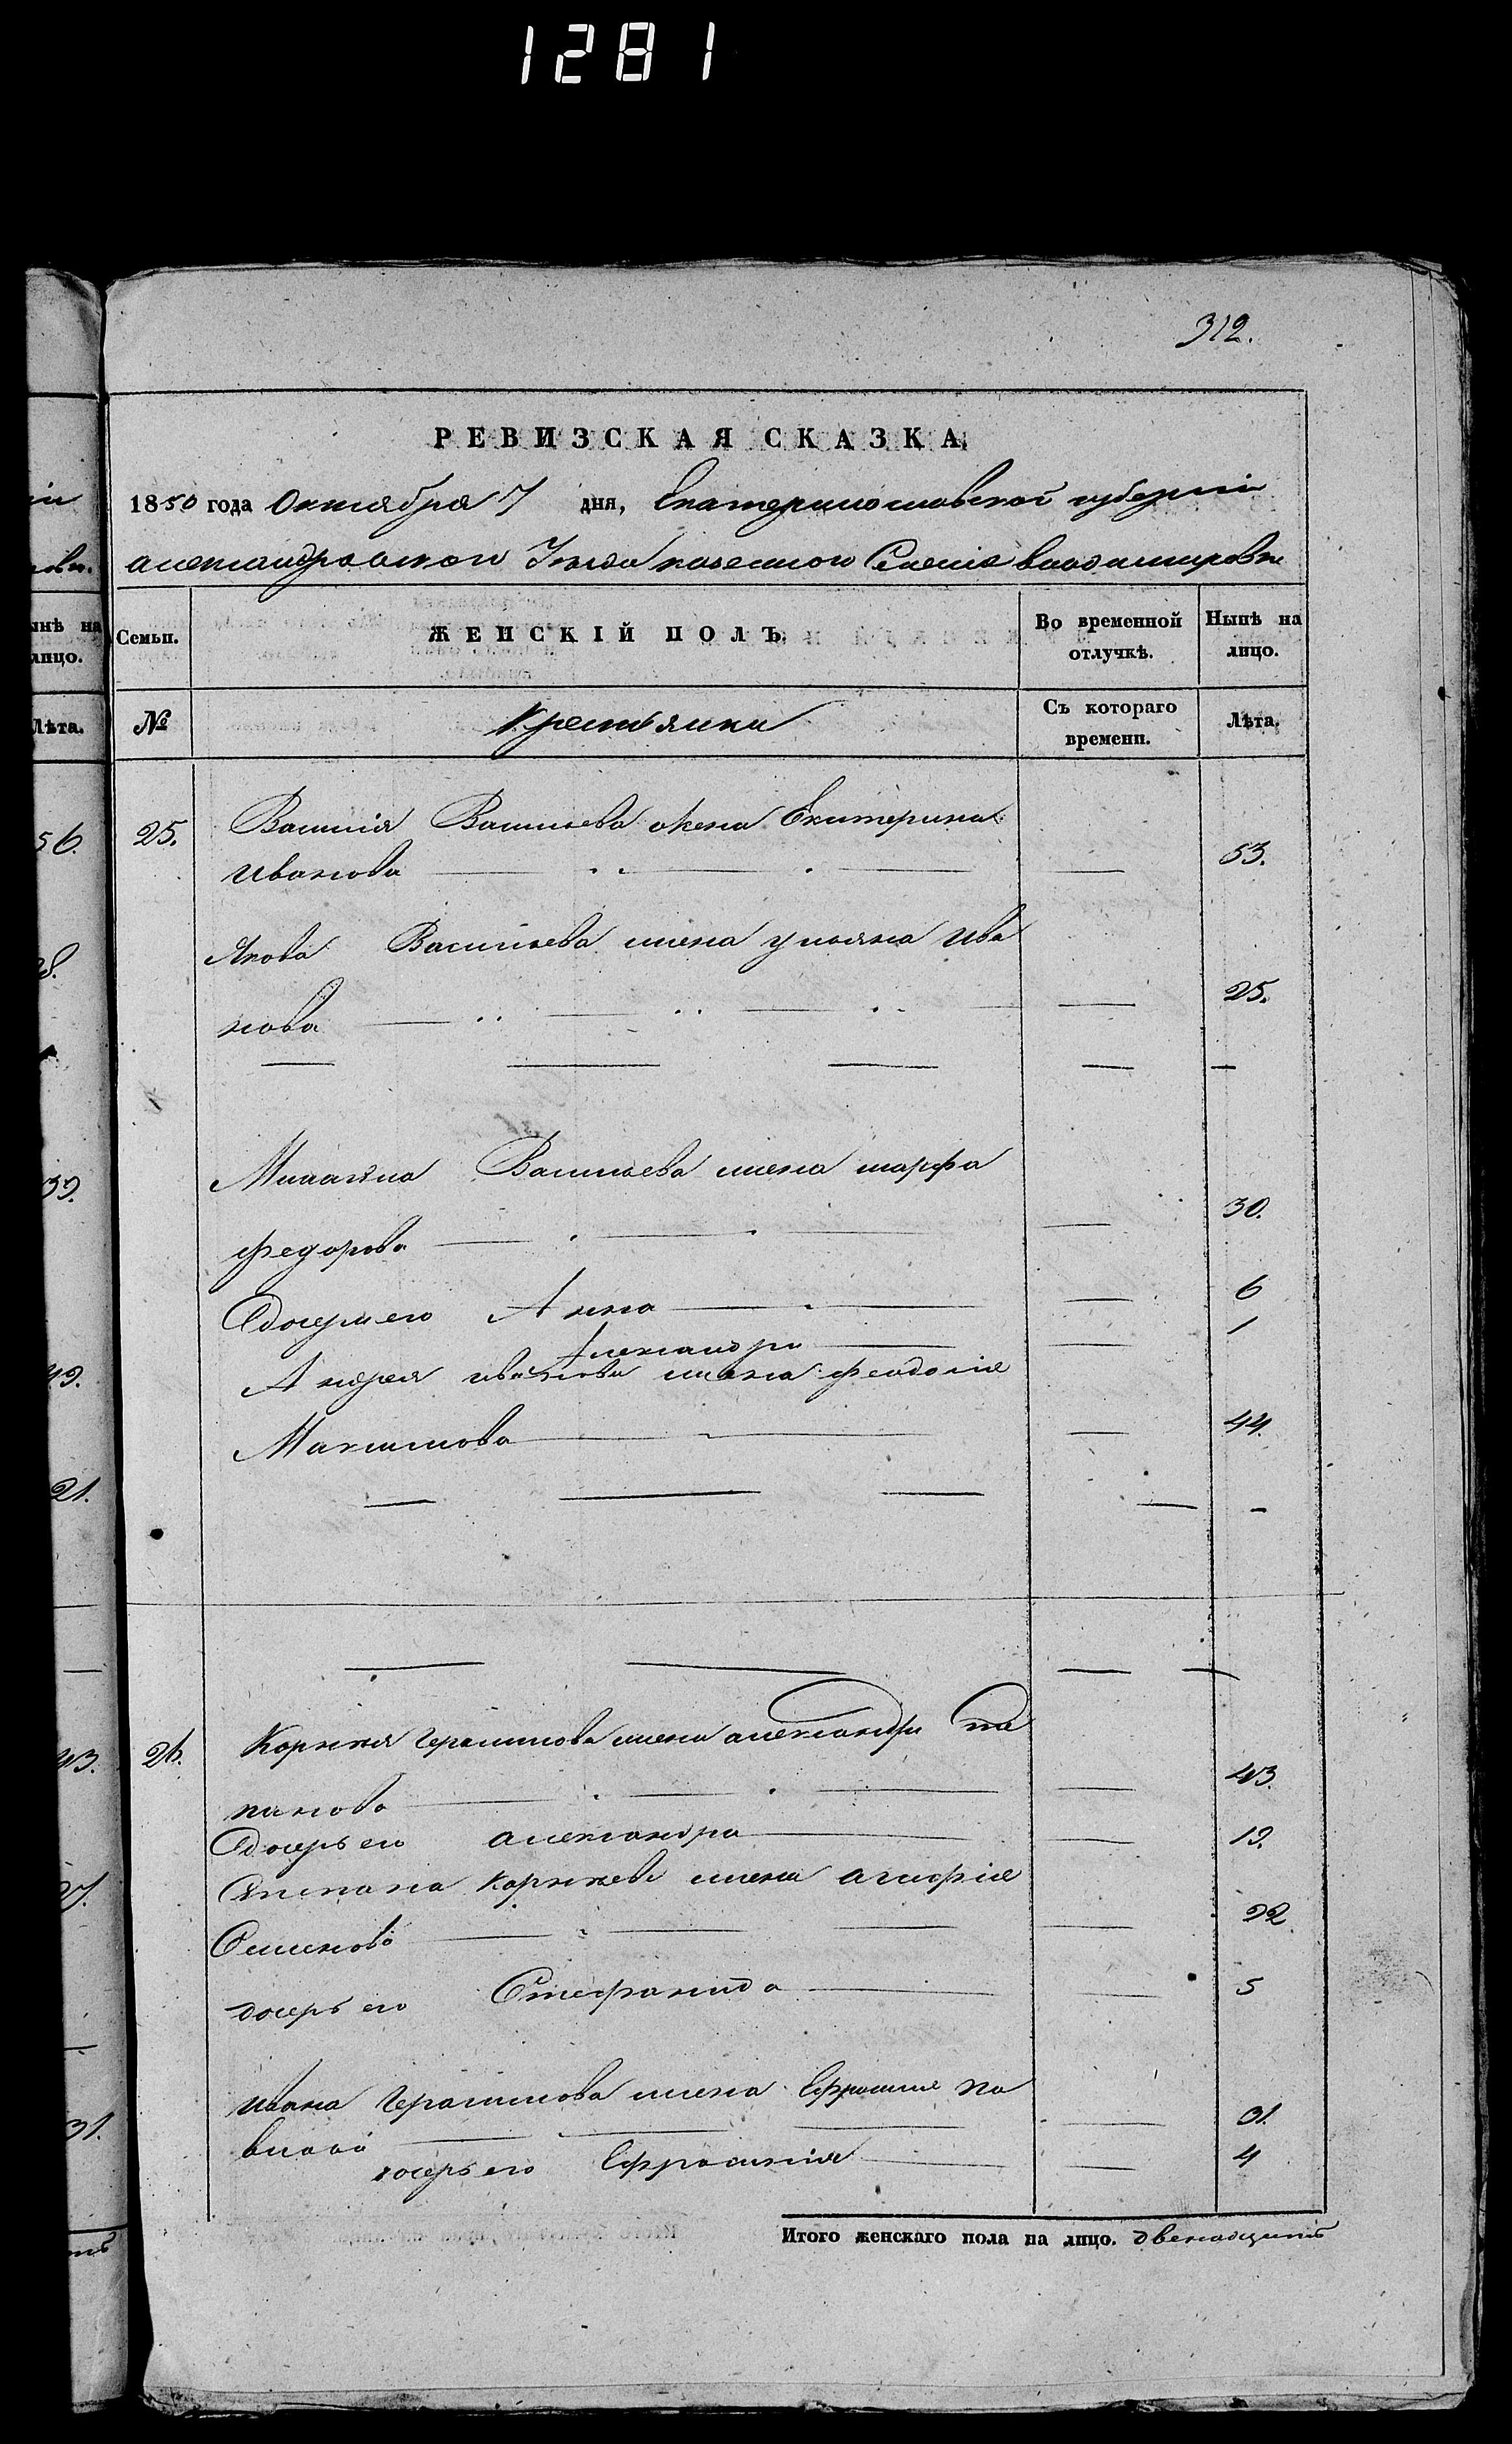 1281
312.
РЕВИЗСКАЯ СКАЗКА,
1850 года Октября 7 дня, Екатеринославской губерніи
александровскаго Уезда казенного Селенія владимировки
Семьи. ЖЕНСКІЙ ПОЛЪ. Во временной отлучкѣ. Нынѣ на лицо.
№ Крестьянки Съ котораго времени. Лѣта.
25. Василія Васильева жена Екатерина
Иванова — — — 53.
Якова Васильева жена ульяна Ива
нова — — — 25.
— — — — —
Васильева жена марфа
федорова — — — 30.
его Анна — — — 6
Александра — — 1
Андрея иванова жена феодосия
Максимова — — — 44.
— — — — —
— — — —
26. Корнея Герасимова жена александра
— — — 43.
дочерь его александра — — 19.
Степана Корнеева жена агафія
Семенова — — — 22
дочерь его Стефанида — — 5
Ивана Герасимова жена Ефросинія Па
влова — — — 31.
дочерь его Ефросинія — — 4
Итого женскаго пола на лицо. двенадцать
56.
39.
49.
21.
43.
27.
31.